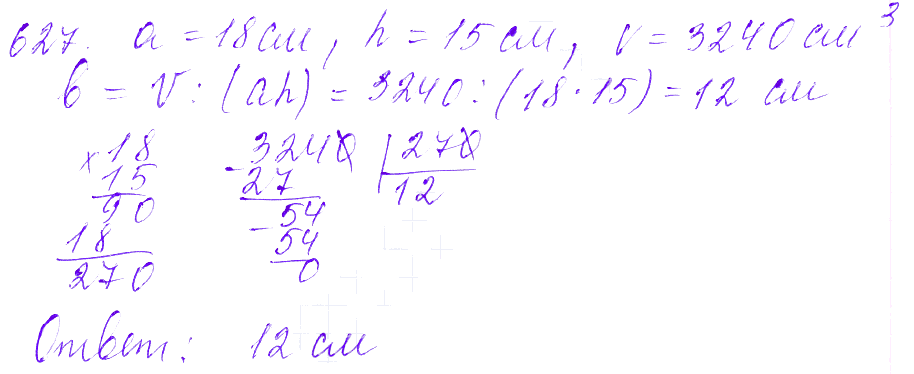 627. a = 18 см, h = 15 см, V = 3240 см³
b = V : (ah) = 3240 : (18 · 15) = 12 см
× 18 - 3240 | 270
15 27 12
90 - 54
18 54
270 0
Ответ: 12 см